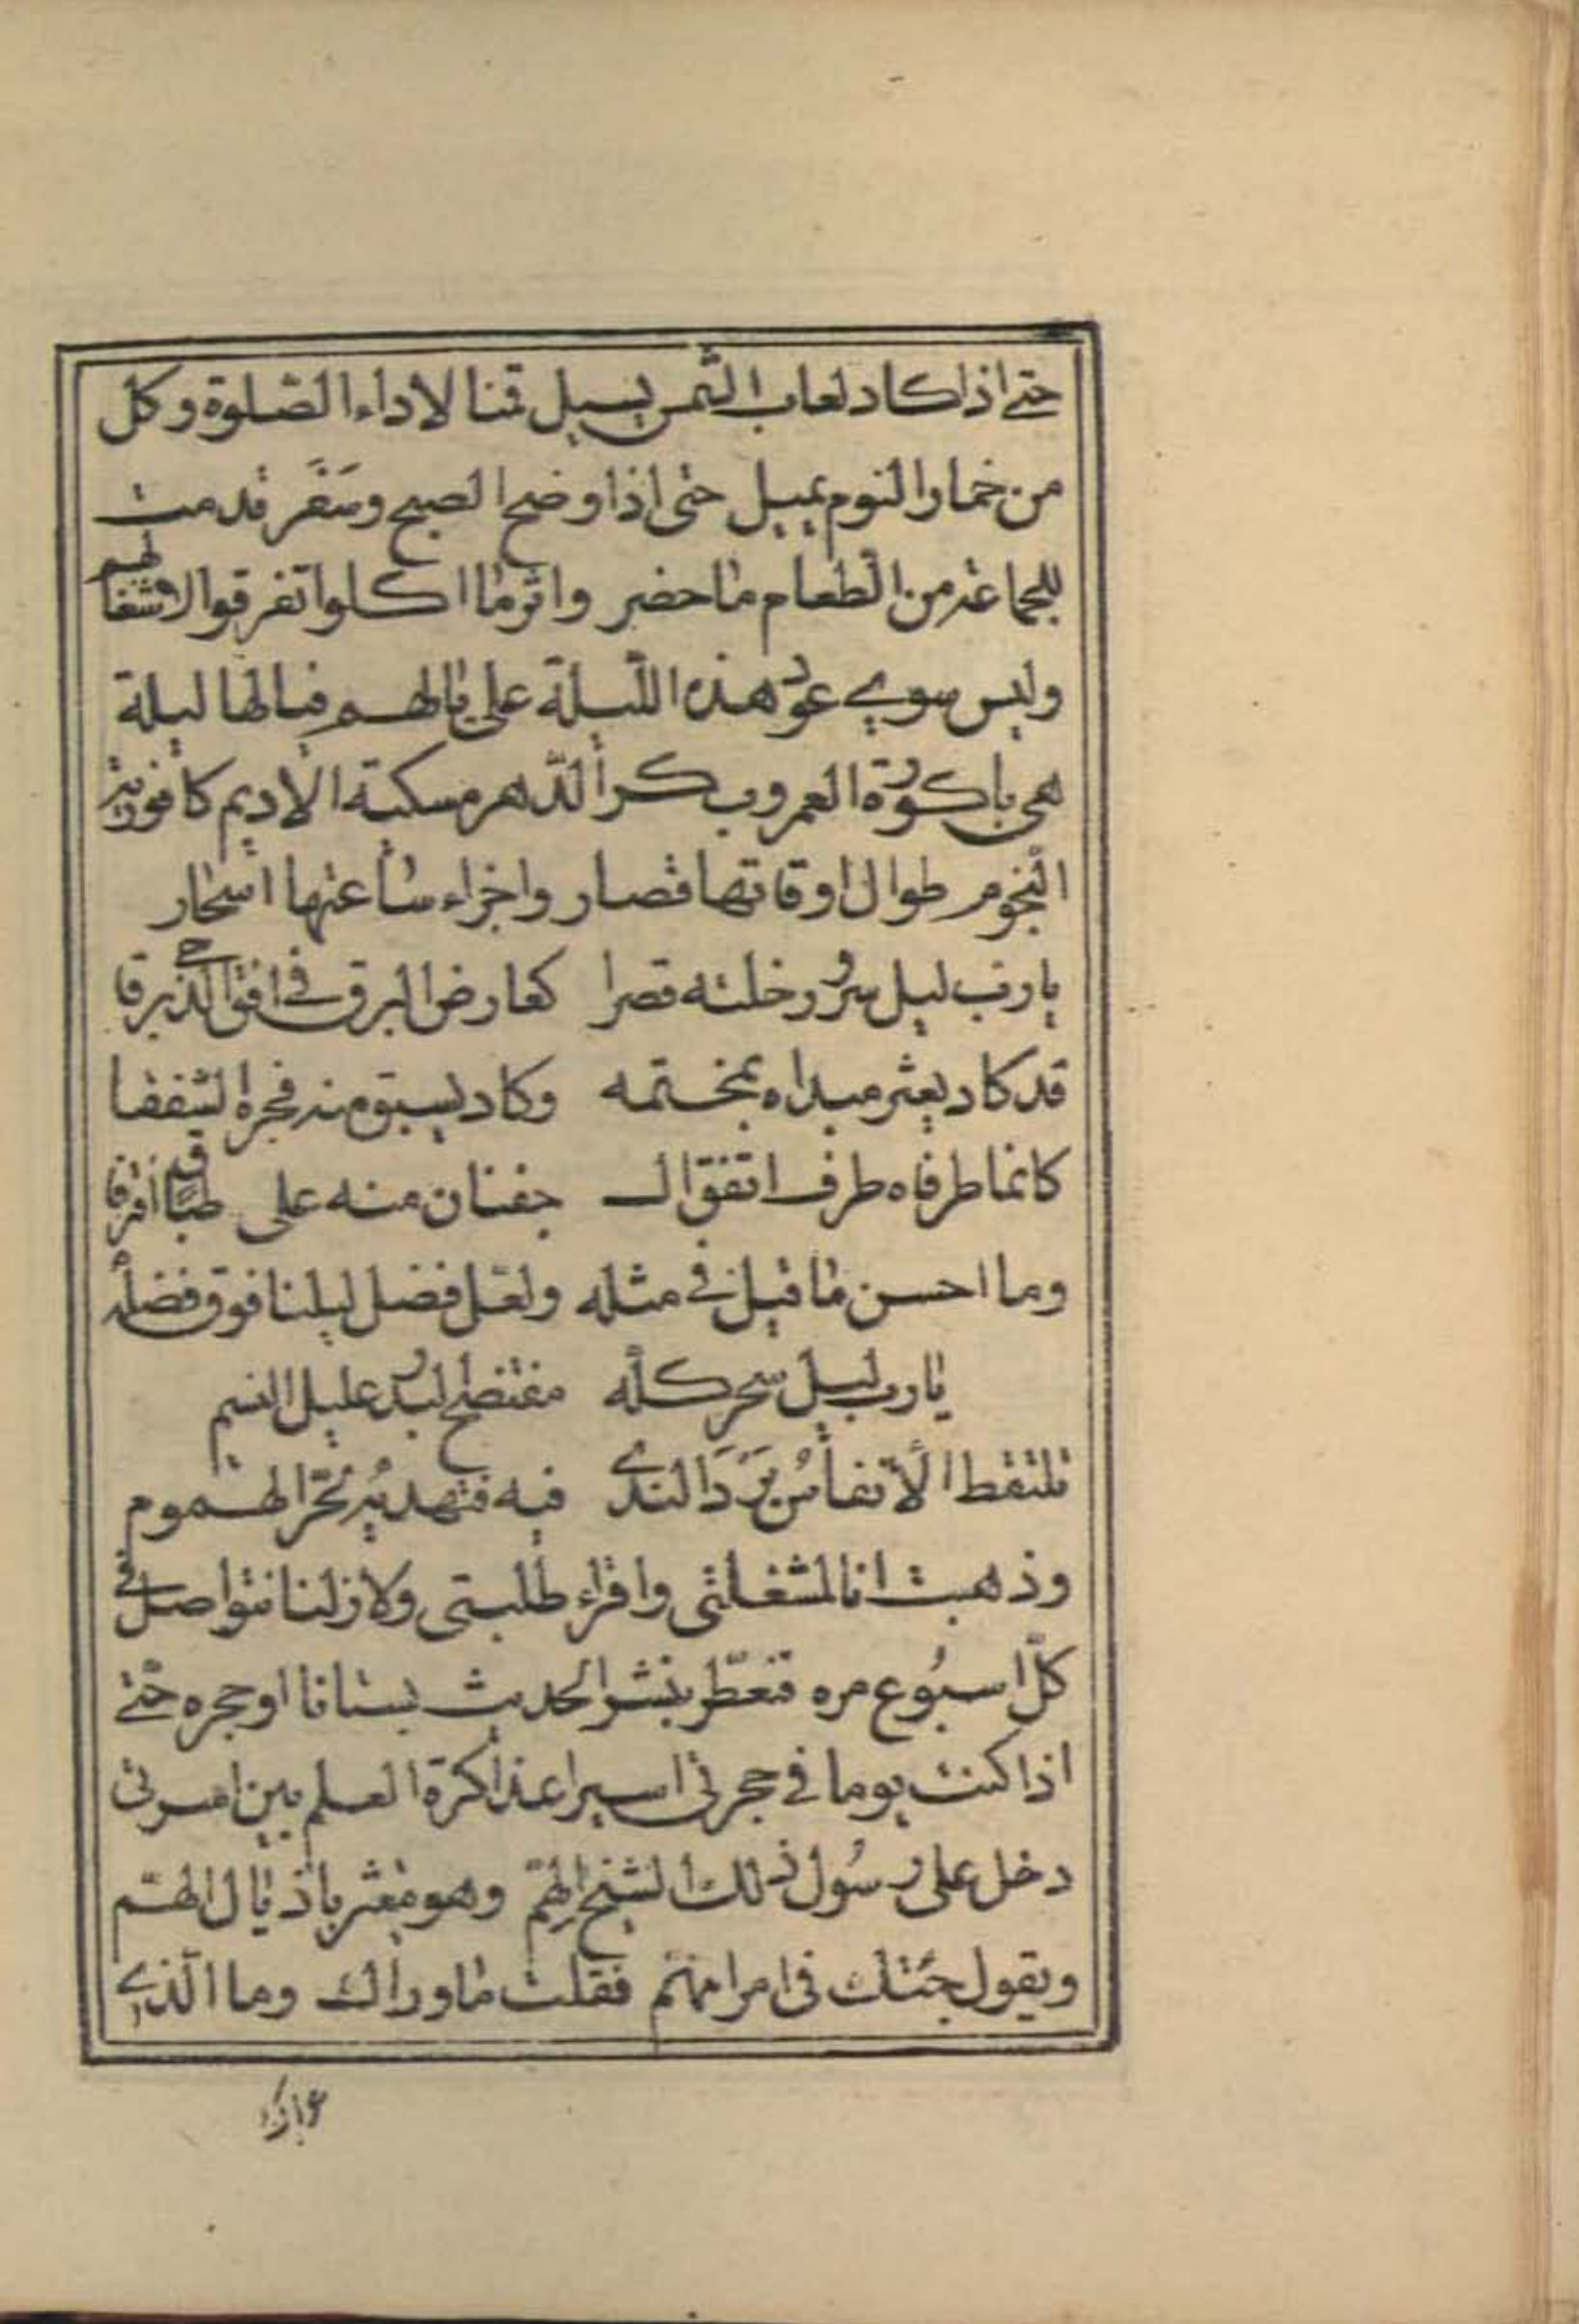 حتى اذا كاد لعاب الشمس يسيل قمنا لاداء الصلوة وكل
من خمار النوم يميل حتى اذا وضح الصبح وسفر قدمت
للجماعة من الطعام ما حضر واثر ما اكلوا تفرقوا لاشغالهم
وليس سوى عود هذه الليلة على بالهم فيا لها ليلة
هى باكورة العمر وبكر الدهر مسكية الاديم كافورية
النجوم طوال اوقاتها قصار واجزاء ساعتها اسحار
يا رب ليل سرور خلته قصرا كعارض البرق فى افق الدجى برقا
قد كاد يعثر مبداه بمختمه وكاد يسبق منه فجره الشفقا
كانما طرفاه طرف اتفق ال جفنان منه على طباق افترقا
وما احسن ما قيل فى مثله ولعل فضل ليلنا فوق فضله
يا رب ليل سحر كله مفتضح البدر عليل النسيم
تلتقط الأنفاسُ بَرَدَ الندى فيه فتهديه لحر الهموم
وذهبت انا لمشغلتى واقراء طلبتى ولا زلنا نتواصل فى
كل اسبوع مره فنعطّر بنشر الحديث بستانا او حجره حتى
اذا كنت يوما فى حجرتى اسير اعذاكرة العلم بين اسرتى
دخل على رسول ذلك الشيخ الهِمّ وهو يعثر باذيال الهتم
ويقول جئتك فى امر مهم فقلت ما وراك وما الذى